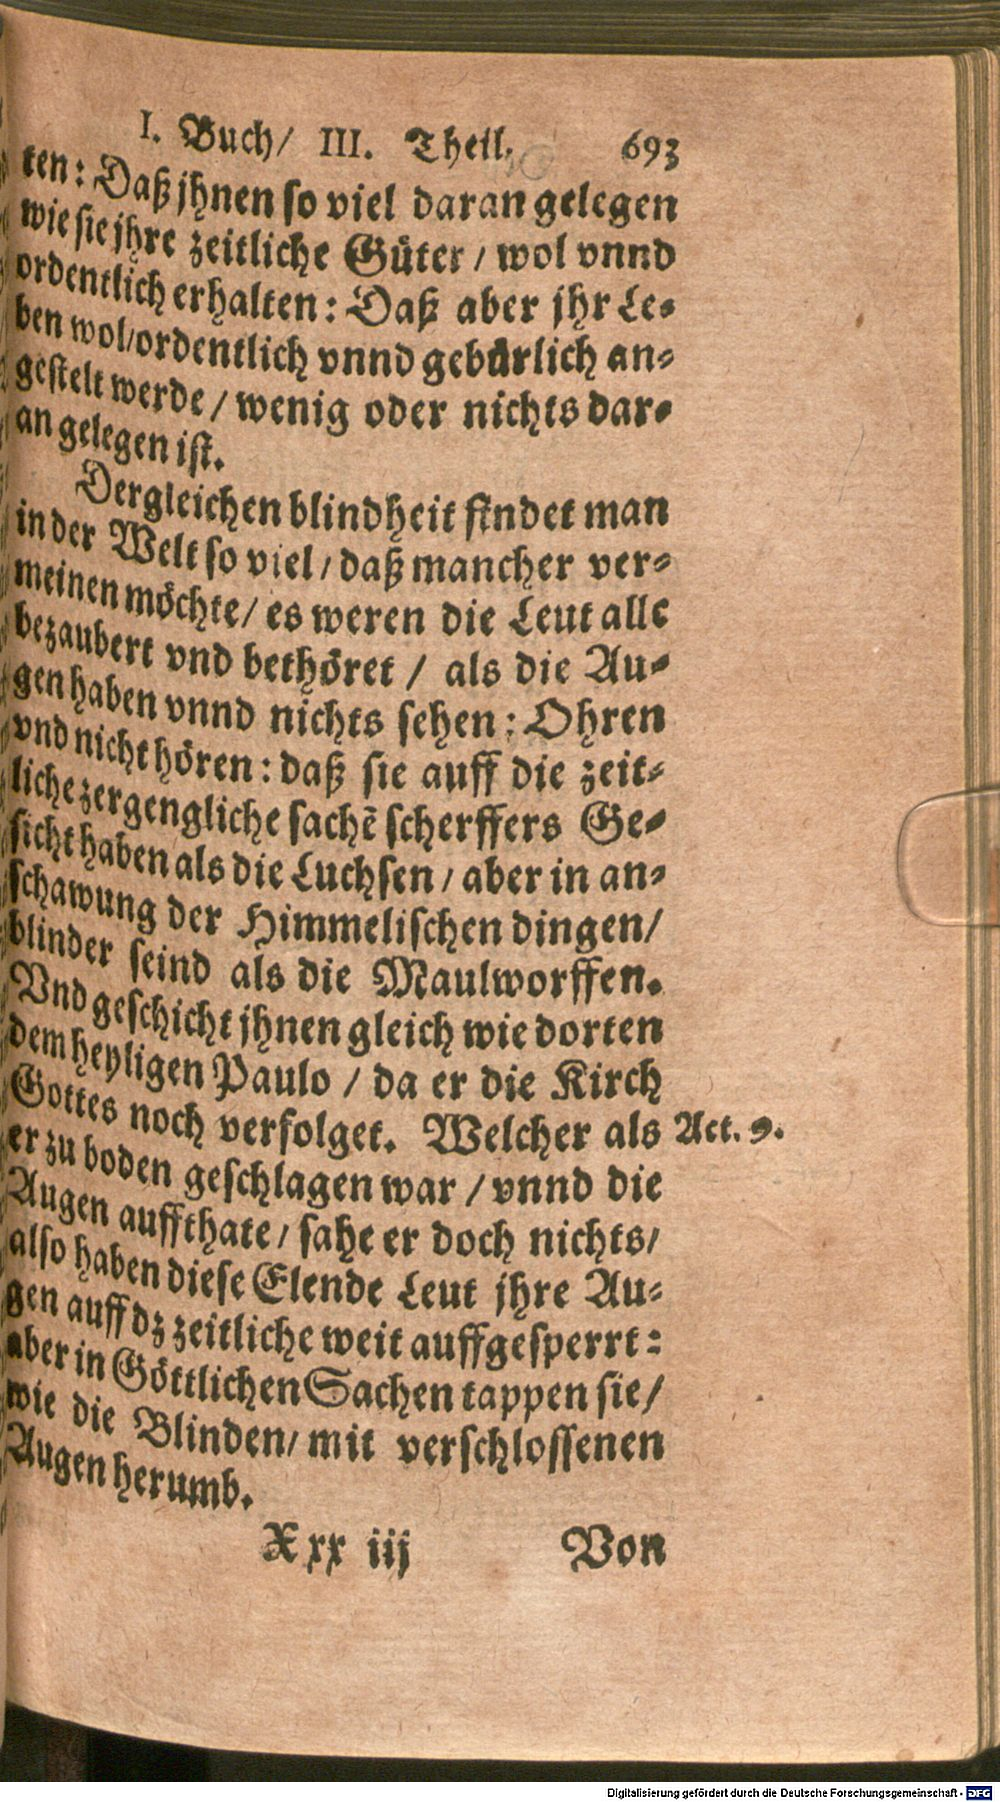 I. Buch/ III. Theil. 693
ten: Daß jhnen so viel daran gelegen
wie sie jhre zeitliche Güter / wol vnnd
ordentlich erhalten: Daß aber jhr Le-
ben wol/ordentlich vnnd gebürlich an-
gestelt werde / wenig oder nichts dar-
an gelegen ist.
Dergleichen blindheit findet man
in der Welt so viel / daß mancher ver-
meinen möchte / es weren die Leut alle
bezaubert vnd bethöret / als die Au-
gen haben vnnd nichts sehen: Ohren
vnd nicht hören: daß sie auff die zeit-
liche zergengliche sachẽ scherffers Ge-
sicht haben als die Luchsen / aber in an-
schawung der Himmelischen dingen/
blinder seind als die Maulworffen.
Vnd geschicht jhnen gleich wie dorten
dem heyligen Paulo / da er die Kirch
Gottes noch verfolget. Welcher als Act. 9.
er zu boden geschlagen war / vnnd die
Augen auffthate / sahe er doch nichts/
also haben diese Elende Leut jhre Au-
gen auff dz zeitliche weit auffgesperrt:
aber in Göttlichen Sachen tappen sie/
wie die Blinden/ mit verschlossenen
Augen herumb.
Xxx iij Von
Digitalisierung gefördert durch die Deutsche Forschungsgemeinschaft - DFG